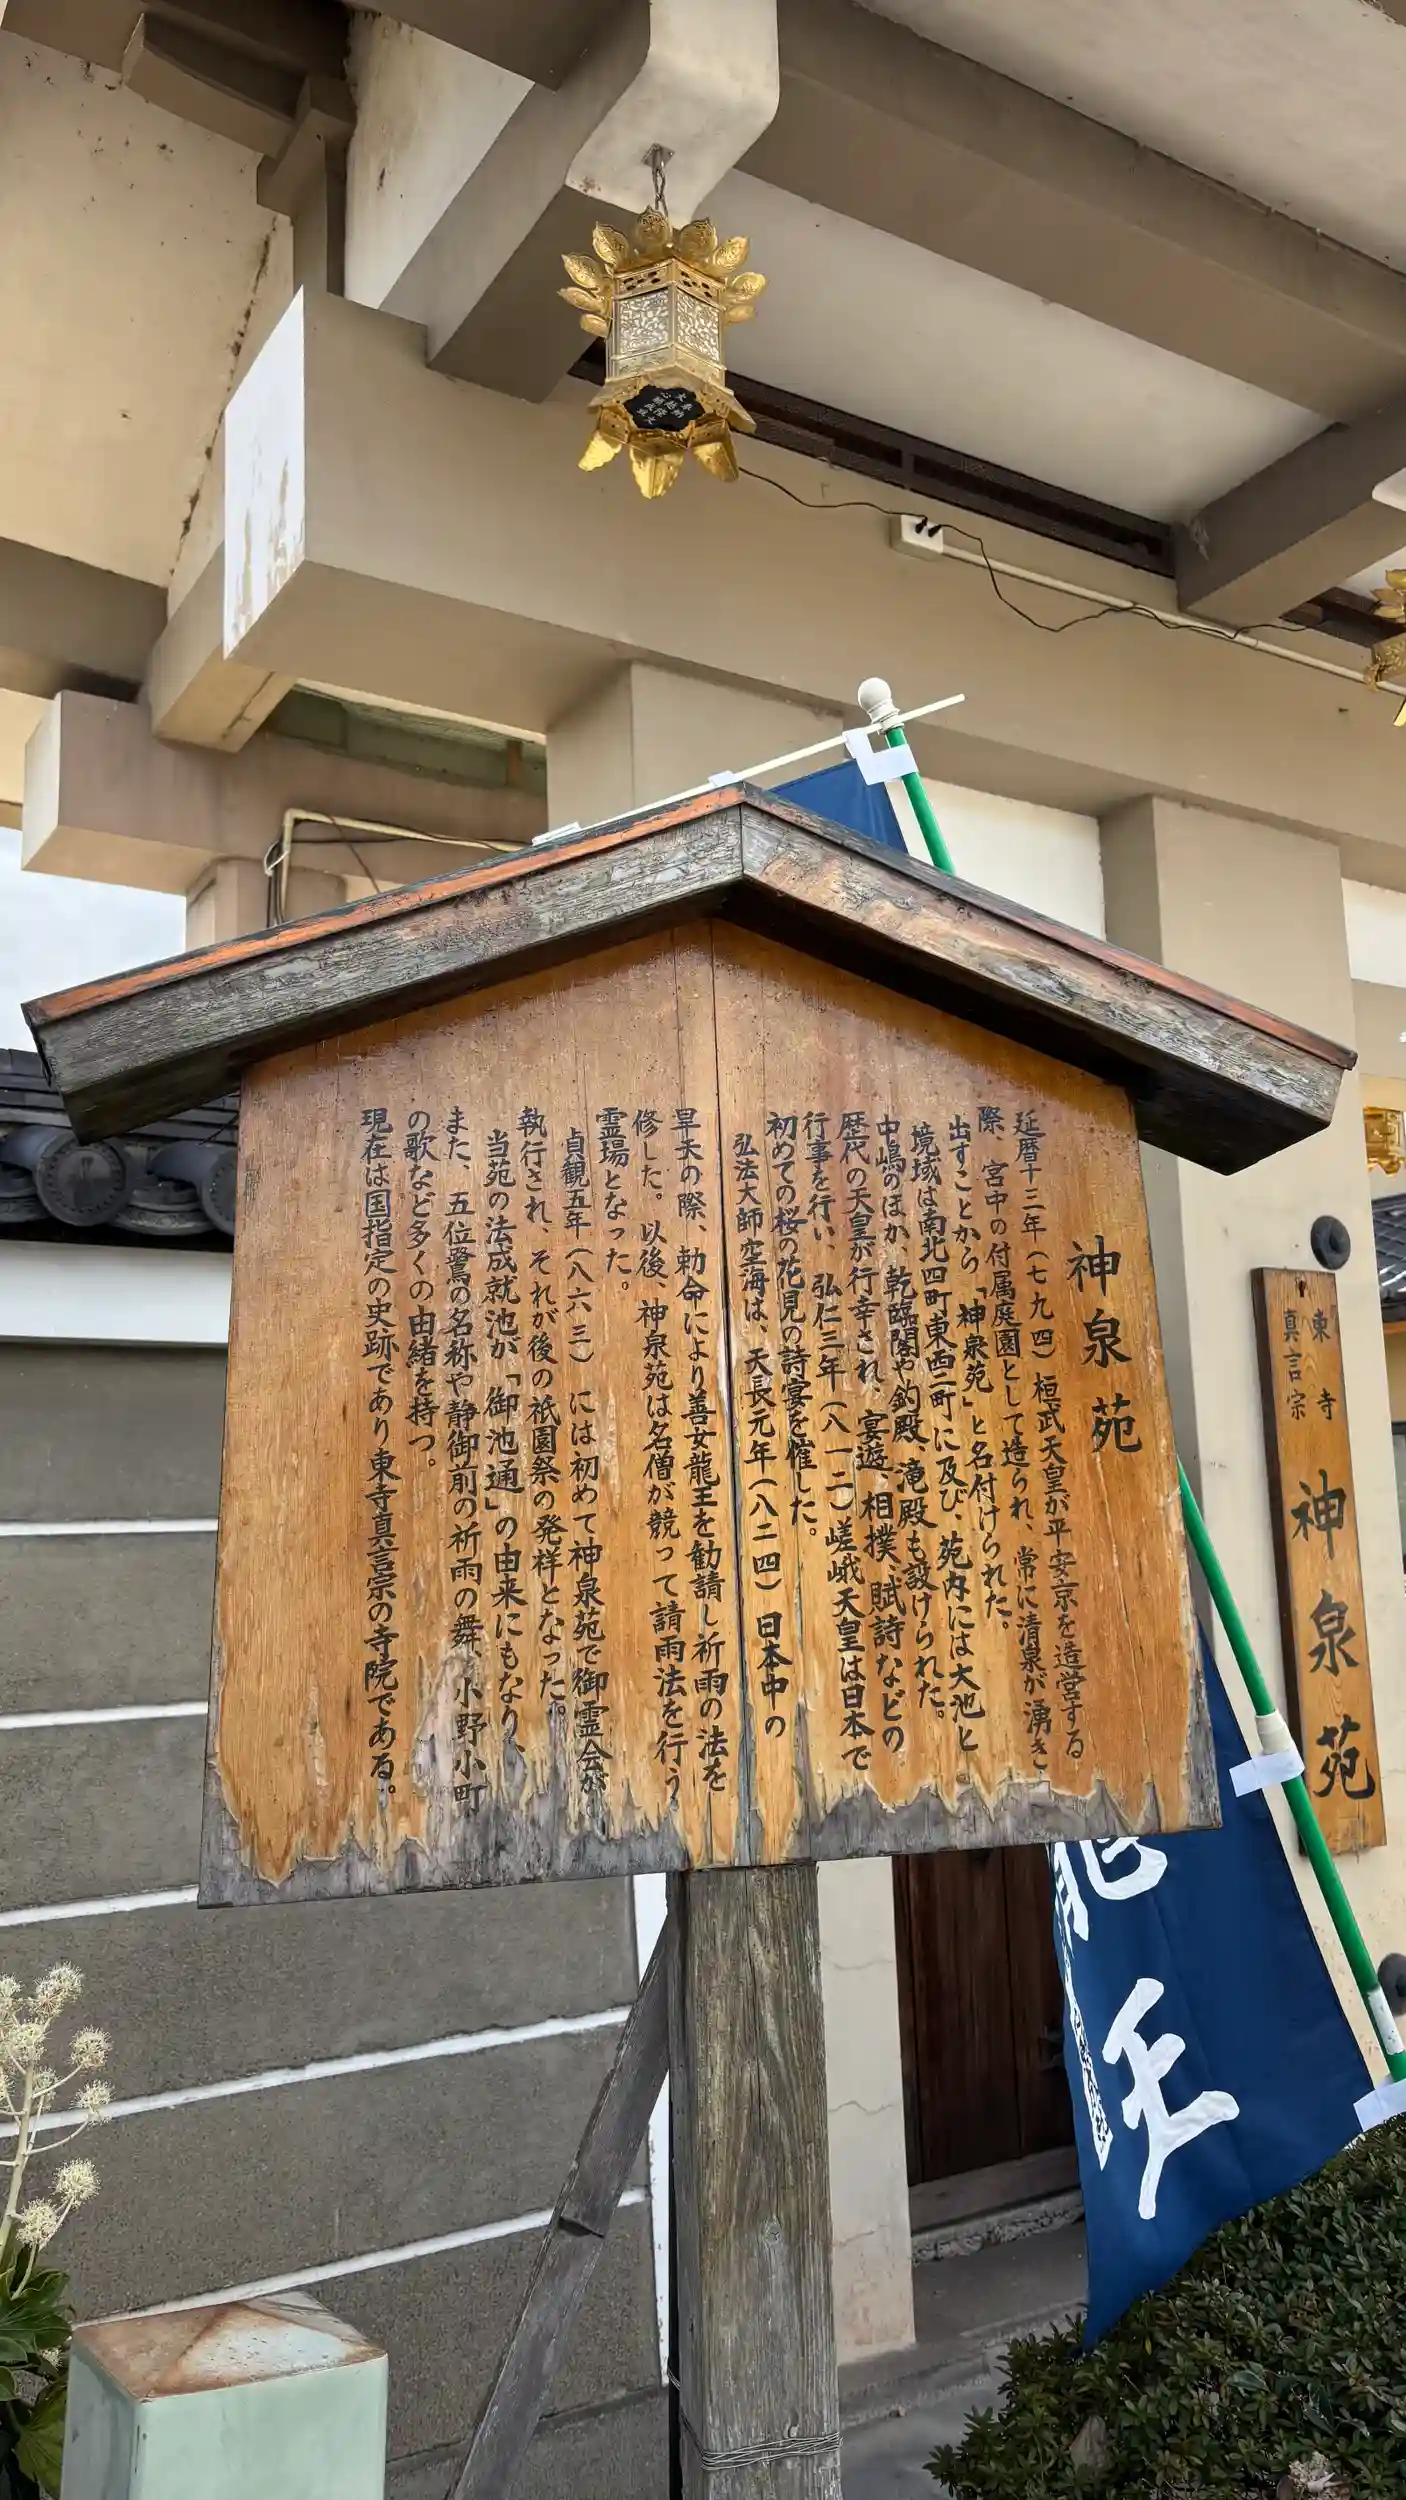 神泉苑
延暦十三年(七九四)桓武天皇が平安京を造営する
際、宮中の付属庭園として造られ、常に清泉が湧き
出すことから「神泉苑」と名付けられた。
境域は南北四町東西二町に及び、苑内には大池と
中嶋のほか、乾臨閣や釣殿、滝殿も設けられた。
歴代の天皇が行幸され、宴遊、相撲、賦詩などの
行事を行い、弘仁三年(八一二)嵯峨天皇は日本で
初めての桜の花見の詩宴を催した。
弘法大師空海は、天長元年(八二四)日本中の
旱天の際、勅命により善女龍王を勧請し祈雨の法を
修した。以後、神泉苑は名僧が競って請雨法を行う
霊場となった。
貞観五年(八六三)には初めて神泉苑で御霊会が
執行され、それが後の祇園祭の発祥となった。
当苑の法成就池が「御池通」の由来にもなり、
また、五位鷺の名称や静御前の祈雨の舞、小野小町
の歌など多くの由緒を持つ。
現在は国指定の史跡であり東寺真言宗の寺院である。
東寺
真言宗
神泉苑
王